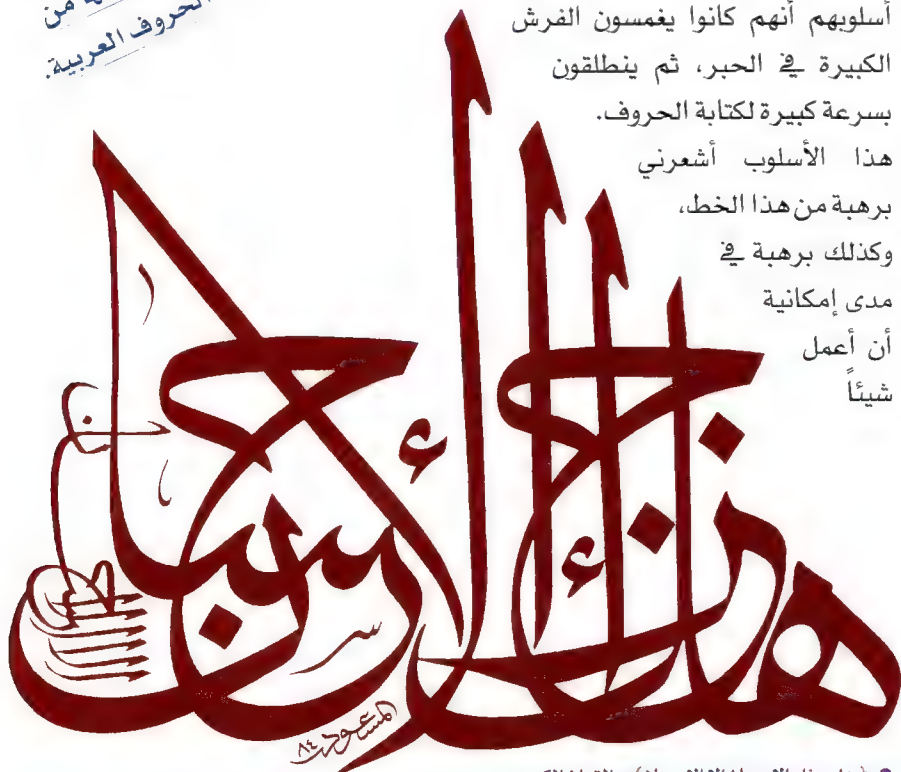 من
الحروف العربية.
أسلوبهم أنهم كانوا يغمسون الفرش
الكبيرة في الحبر، ثم ينطلقون
بسرعة كبيرة لكتابة الحروف.
هذا الأسلوب أشعرني
برهبة من هذا الخط،
وكذلك برهبة في
مدى إمكانية
أن أعمل
شيئاً
هل جزاء الإحسان إلا الإحسان
المسعود ٨٤